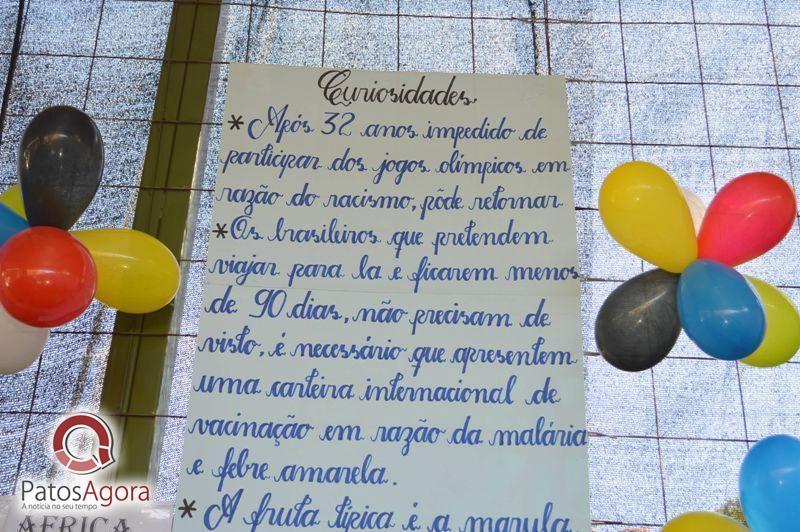 Curiosidades
* Após 32 anos impedido de
participar dos jogos olímpicos em
razão do racismo, pôde retornar
* Os brasileiros que pretendem
viajar para la e ficarem menos
de 90 dias, não precisam de
visto, é necessário que apresentem
uma carteira internacional de
vacinação em razão da malária
e febre amarela.
* A fruta típica é a marula
PatosAgora
A notícia no seu tempo
AFRICA